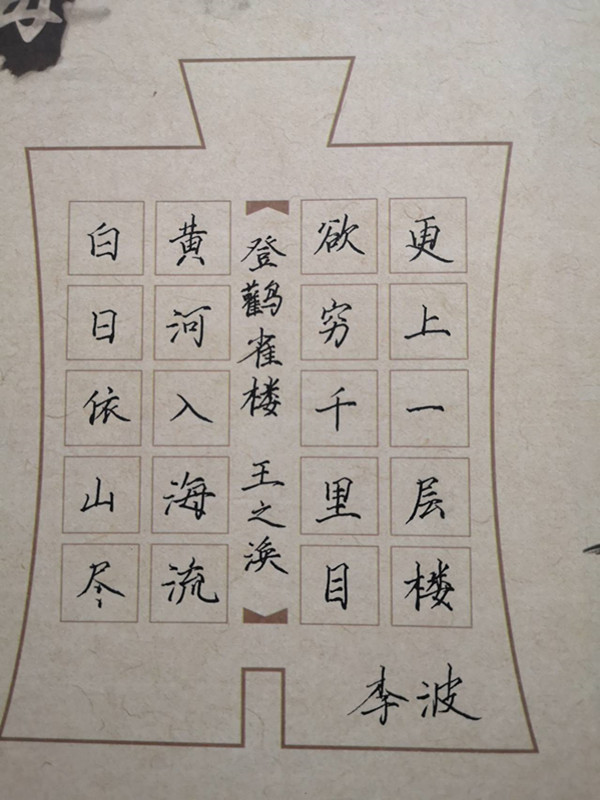 白日依山尽
黄河入海流
登鹳雀楼 王之涣
欲穷千里目
更上一层楼
李波